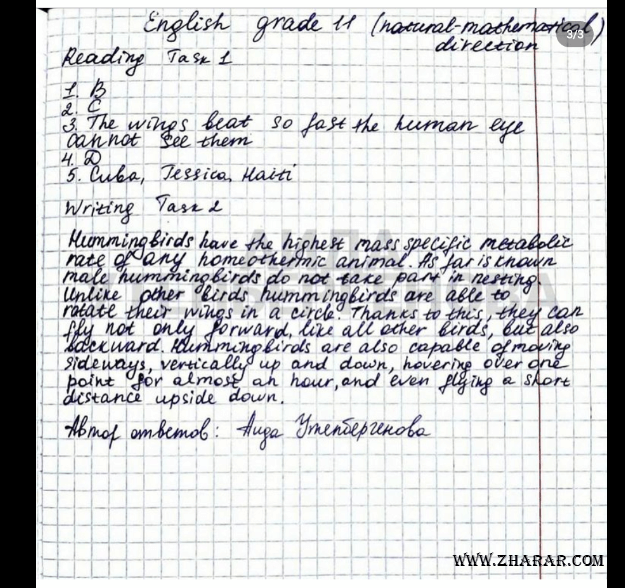 English grade 11 (natural-mathematical)
direction
3/3
Reading Task 1
1. B
2. C
3. The wings beat so fast the human eye
cannot see them
4. D
5. Cuba, Jessica, Haiti
Writing Task 2
Hummingbirds have the highest mass specific metabolic
rate of any homeothermic animal. As far is known
male hummingbirds do not take part in nesting.
Unlike other birds hummingbirds are able to
rotate their wings in a circle. Thanks to this, they can
fly not only forward, like all other birds, but also
backward. Hummingbirds are also capable of moving
sideways, vertically up and down, hovering over one
point for almost an hour, and even flying a short
distance upside down.
Автор ответов: Аида Утепбергенова
WWW.ZHARAR.COM